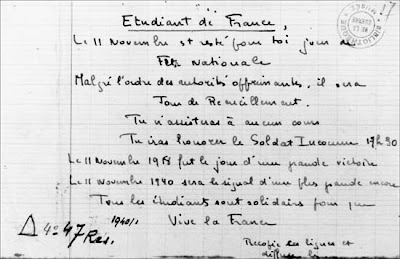 Etudiant de France,
Le 11 Novembre est resté pour toi jour de
Fête Nationale
Malgré l'ordre des autorités opprimantes, il sera
Jour de Recueillement.
Tu n'assisteras à aucun cours
Tu iras honorer le Soldat Inconnu 17h30
Le 11 Novembre 1918 fut le jour d'une grande victoire
Le 11 Novembre 1940 sera le signal d'une plus grande encore
Tous les étudiants sont solidaires pour que
Vive la France
Δ 4º 47 Res. 1940/1
Recopie ces lignes et
diffuse les